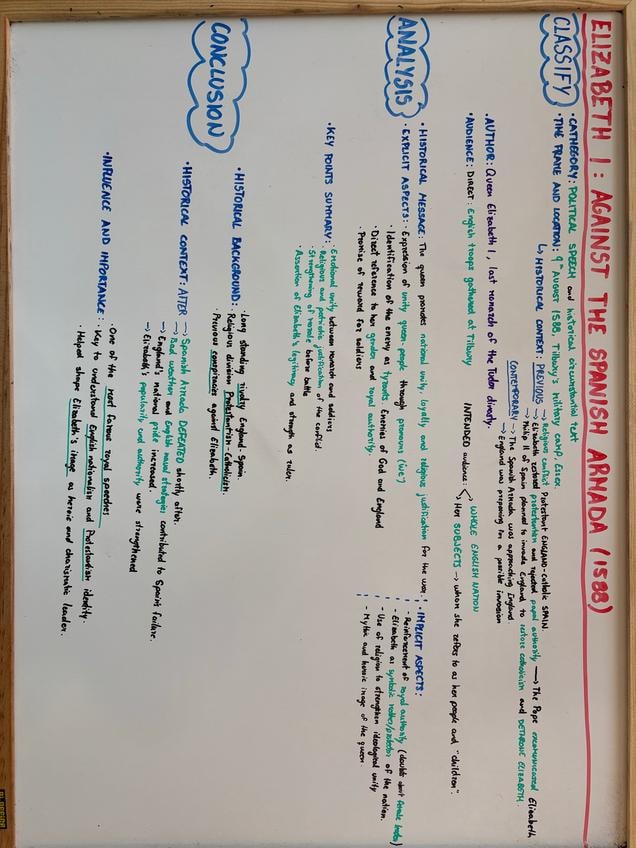 ELIZABETH I: AGAINST THE SPANISH ARMADA (1588)
CLASSIFY
• CATHEGORY: POLITICAL SPEECH and historical circumstantial text
• TIME FRAME AND LOCATION: 9th August 1588, Tillbury's military camp, Essex
↳ HISTORICAL CONTEXT: PREVIOUS → Religious conflict Protestant ENGLAND-catholic SPAIN
→ Elizabeth restored protestantism and rejected papal authority → The Pope excommunicated Elizabeth
→ Philip II of Spain planned to invade England to restore catholicism and DETHRONE ELIZABETH.
CONTEMPORARY → The Spanish Armada was approaching England
→ England was preparing for a possible invasion
• AUTHOR: Queen Elizabeth I, last monarch of the Tudor dinasty.
• AUDIENCE: DIRECT: English troops gathered at Tilbury
INTENDED audience: WHOLE ENGLISH NATION
Her SUBJECTS → whom she refers to as her people and "children".
ANALYSIS
• HISTORICAL MESSAGE: The queen promotes national unity, loyalty and religious justification for the war
• EXPLICIT ASPECTS: • Expression of unity queen-people through pronouns ("we")
• Identification of the enemy as tyrants. Enemies of God and England
• Direct reference to her gender and royal authority.
• Promise of reward for soldiers
• IMPLICIT ASPECTS:
- Reinforcement of royal authority (doubts about female leader)
- Elizabeth as symbolic mother/protector of the nation.
- Use of religion to strengthen ideological unity
- Mythic and heroic image of the queen.
• KEY POINTS SUMMARY: • Emotional unity between monarch and soldiers
• Religious and patriotic justification of the conflict.
• Strengthening of morale before battle
• Assertion of Elizabeth's legitimacy and strength as ruler.
CONCLUSION
• HISTORICAL BACKGROUND: • Long standing rivalry England-Spain.
• Religious division Protestantism-Catholicism.
• Previous conspiracies against Elizabeth
• HISTORICAL CONTEXT: AFTER → Spanish Armada DEFEATED shortly after.
→ Bad weather and English naval strategies contributed to Spain's failure.
→ England's national pride increased.
→ Elizabeth's popularity and authority were strengthened
• INFLUENCE AND IMPORTANCE: • One of the most famous royal speeches
• Key to understand English nationalism and Protestantism identity.
• Helped shape Elizabeth's image as heroic and charismatic leader.